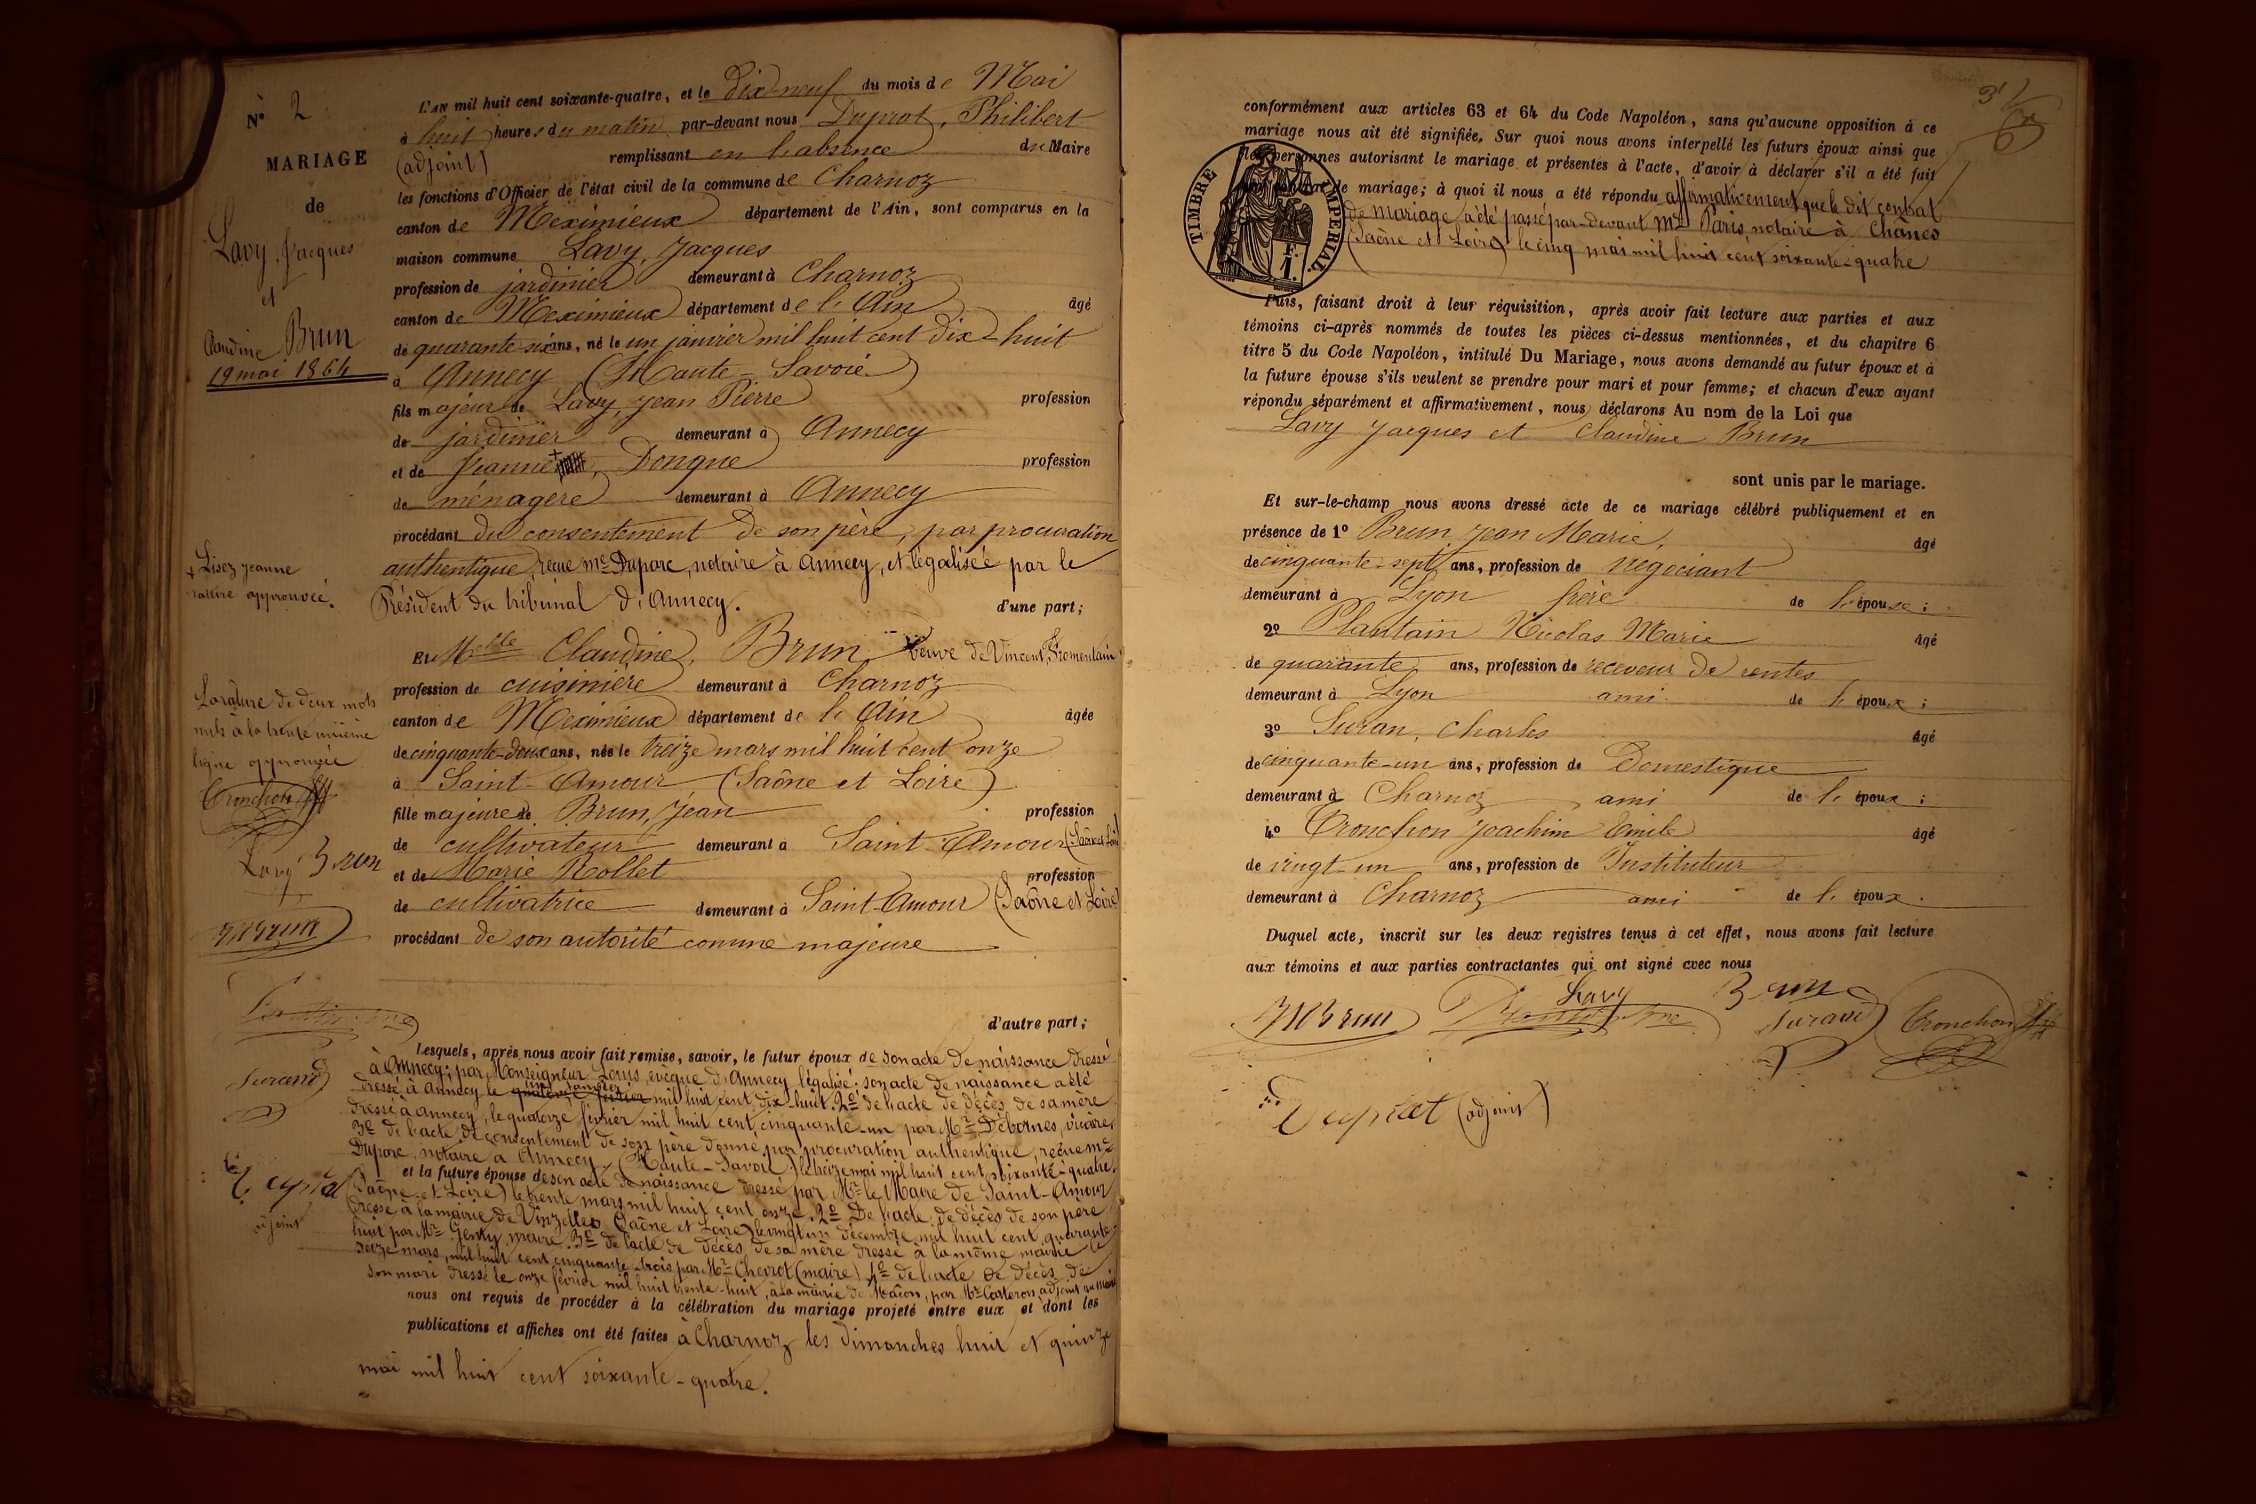 N° 2
MARIAGE
de
Lavy, Jacques
et
Claudine Brun
19 mai 1864
+ Lisez Jeanne
rature approuvée.
La rature de deux mots
nuls à la trente unième
ligne approuvée
Tronchon
Lavy Brun
JM Brun
Surand
Duprat
adjoint
L'AN mil huit cent soixante-quatre, et le dix-neuf du mois de Mai
à huit heures du matin, par-devant nous Duprat, Philibert
(adjoint) remplissant en l'absence du Maire
les fonctions d'Officier de l'état civil de la commune de Charnoz
canton de Meximieux département de l'Ain, sont comparus en la
maison commune Lavy, Jacques
profession de jardinier demeurant à Charnoz
canton de Meximieux département de l'Ain âgé
de quarante-six ans, né le un janvier mil huit cent dix-huit
à Annecy (Haute-Savoie)
fils majeur de Lavy, Jean Pierre profession
de jardinier demeurant à Annecy
et de Jeanne +, Dongue profession
de ménagère demeurant à Annecy
procédant du consentement de son père, par procuration
authentique, reçue Me Duparc, notaire à Annecy, et légalisée par le
Président du tribunal d'Annecy. d'une part;
Et Melle Claudine, Brun veuve de Vincent, Fromentain
profession de cuisinière demeurant à Charnoz
canton de Meximieux département de l'Ain âgée
de cinquante-deux ans, née le treize mars mil huit cent onze
à Saint-Amour (Saône et Loire)
fille majeure de Brun, Jean profession
de cultivateur demeurant à Saint-Amour (Saône et Loire)
et de Marie Rollet profession
de cultivatrice demeurant à Saint-Amour (Saône et Loire)
procédant de son autorité comme majeure
d'autre part;
Lesquels, après nous avoir fait remise, savoir, le futur époux de son acte de naissance dressé
à Annecy; par Monseigneur Louis, évêque d'Annecy légalisé; son acte de naissance a été
dressé à Annecy le quatorze février un janvier mil huit cent dix-huit. 2° de l'acte de décès de sa mère
dressé à Annecy, le quatorze février mil huit cent cinquante-un par Mr Débornes, vicaire,
3° de l'acte de consentement de son père donné par procuration authentique, reçue Me
Duparc, notaire à Annecy, (Haute-Savoie) le treize mai mil huit cent soixante-quatre.
et la future épouse de son acte de naissance dressé par Mr le Maire de Saint-Amour
(Saône et Loire) le trente mars mil huit cent onze. 2° De l'acte de décès de son père
dressé à la mairie de Vinzelles (Saône et Loire) le vingt un décembre mil huit cent quarante-
huit par Mr Genty, maire. 3° de l'acte de décès de sa mère dressé à la même mairie le
seize mars, mil huit cent cinquante-trois par Mr Chevrot (maire) 4° de l'acte de décès de
son mari dressé le onze février mil huit trente-huit, à la mairie de Mâcon, par Mr Carteron adjoint au maire
nous ont requis de procéder à la célébration du mariage projeté entre eux et dont les
publications et affiches ont été faites à Charnoz les dimanches huit et quinze
mai mil huit cent soixante-quatre.
31
conformément aux articles 63 et 64 du Code Napoléon, sans qu'aucune opposition à ce
mariage nous ait été signifiée. Sur quoi nous avons interpellé les futurs époux ainsi que
les personnes autorisant le mariage et présentes à l'acte, d'avoir à déclarer s'il a été fait
un contrat de mariage; à quoi il nous a été répondu affirmativement que le dit contrat
de mariage a été passé par-devant Me Paris, notaire à Chânes
(Saône et Loire) le cinq mai mil huit cent soixante-quatre
TIMBRE IMPERIAL
F.
1.
Puis, faisant droit à leur réquisition, après avoir fait lecture aux parties et aux
témoins ci-après nommés de toutes les pièces ci-dessus mentionnées, et du chapitre 6
titre 5 du Code Napoléon, intitulé Du Mariage, nous avons demandé au futur époux et à
la future épouse s'ils veulent se prendre pour mari et pour femme; et chacun d'eux ayant
répondu séparément et affirmativement, nous déclarons Au nom de la Loi que
Lavy Jacques et Claudine Brun
sont unis par le mariage.
Et sur-le-champ nous avons dressé acte de ce mariage célébré publiquement et en
présence de 1° Brun, Jean Marie, âgé
de cinquante-sept ans, profession de négociant
demeurant à Lyon frère de l'épouse;
2° Plantain Nicolas Marie âgé
de quarante ans, profession de receveur de rentes
demeurant à Lyon ami de l'époux;
3° Suran, Charles âgé
de cinquante-un ans, profession de Domestique
demeurant à Charnoz, ami de l'époux;
4° Tronchon Joachim Emile âgé
de vingt-un ans, profession de Instituteur
demeurant à Charnoz ami de l'époux.
Duquel acte, inscrit sur les deux registres tenus à cet effet, nous avons fait lecture
aux témoins et aux parties contractantes qui ont signé avec nous
Lavy Brun
JM Brun Surand Tronchon
Duprat (adjoint)